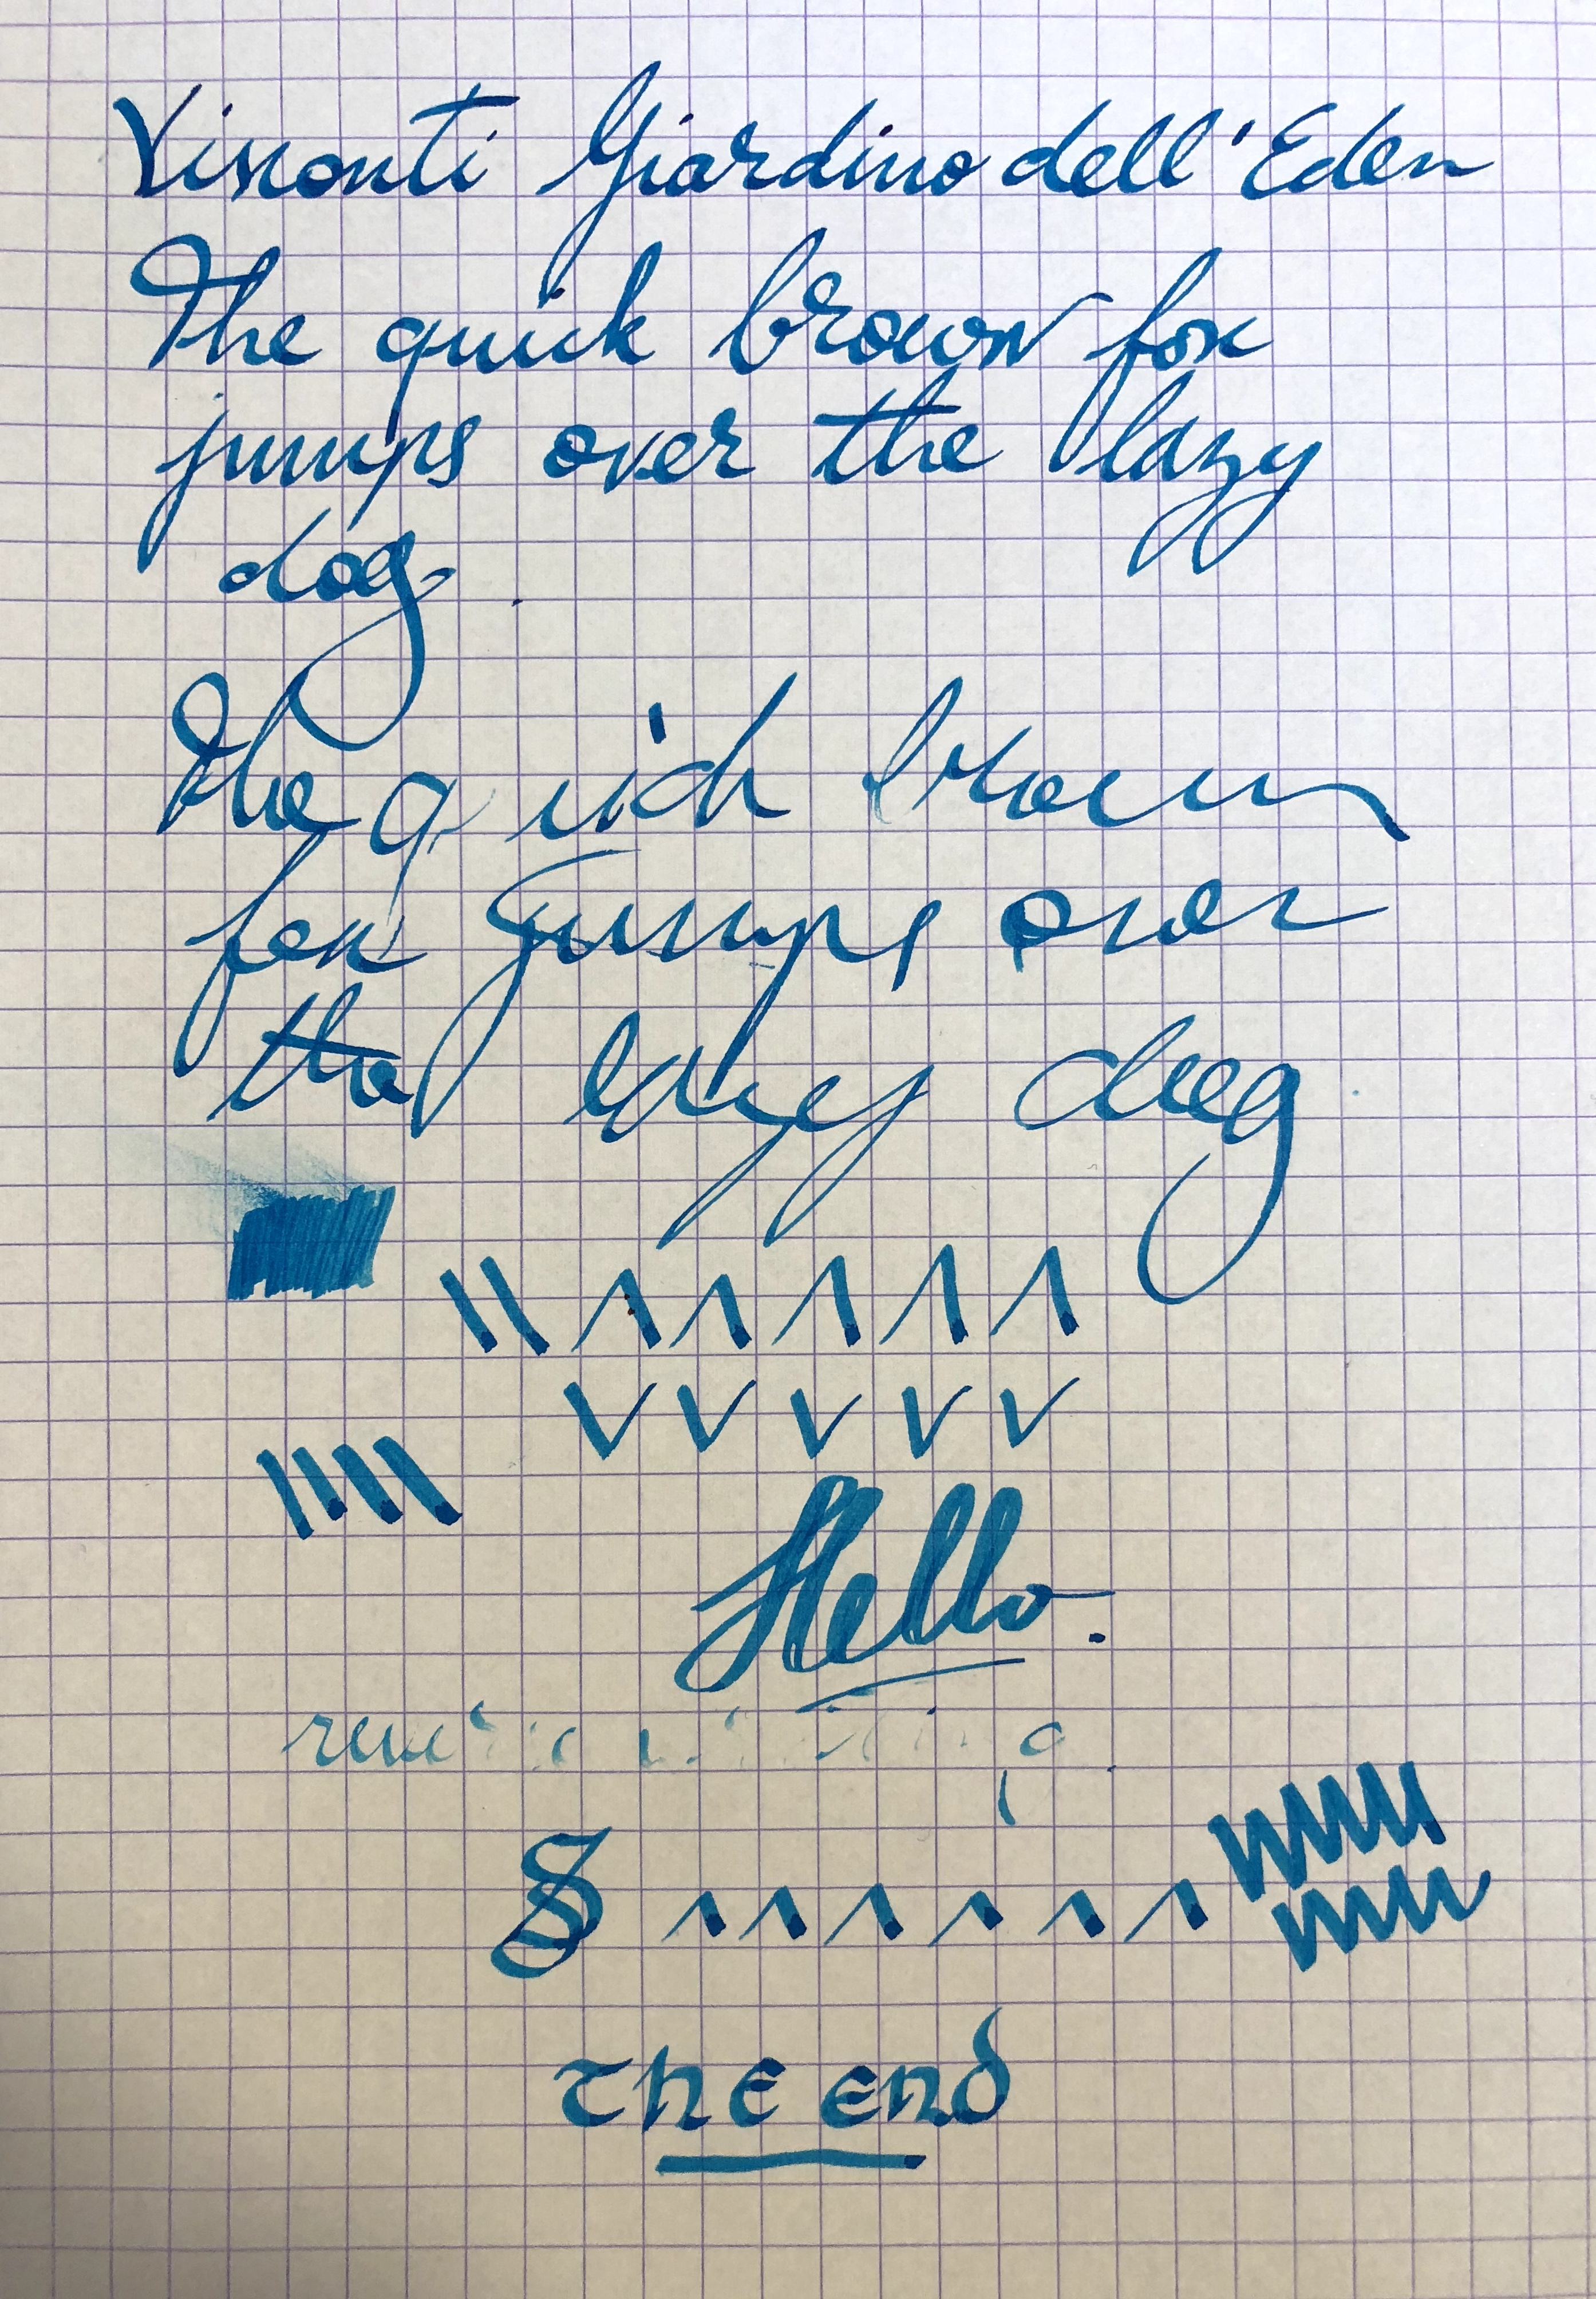 Visconti Giardino dell'Eden
The quick brown fox
jumps over the lazy
dog.
The quick brown
fox jumps over
the lazy dog.
Hello.
The end